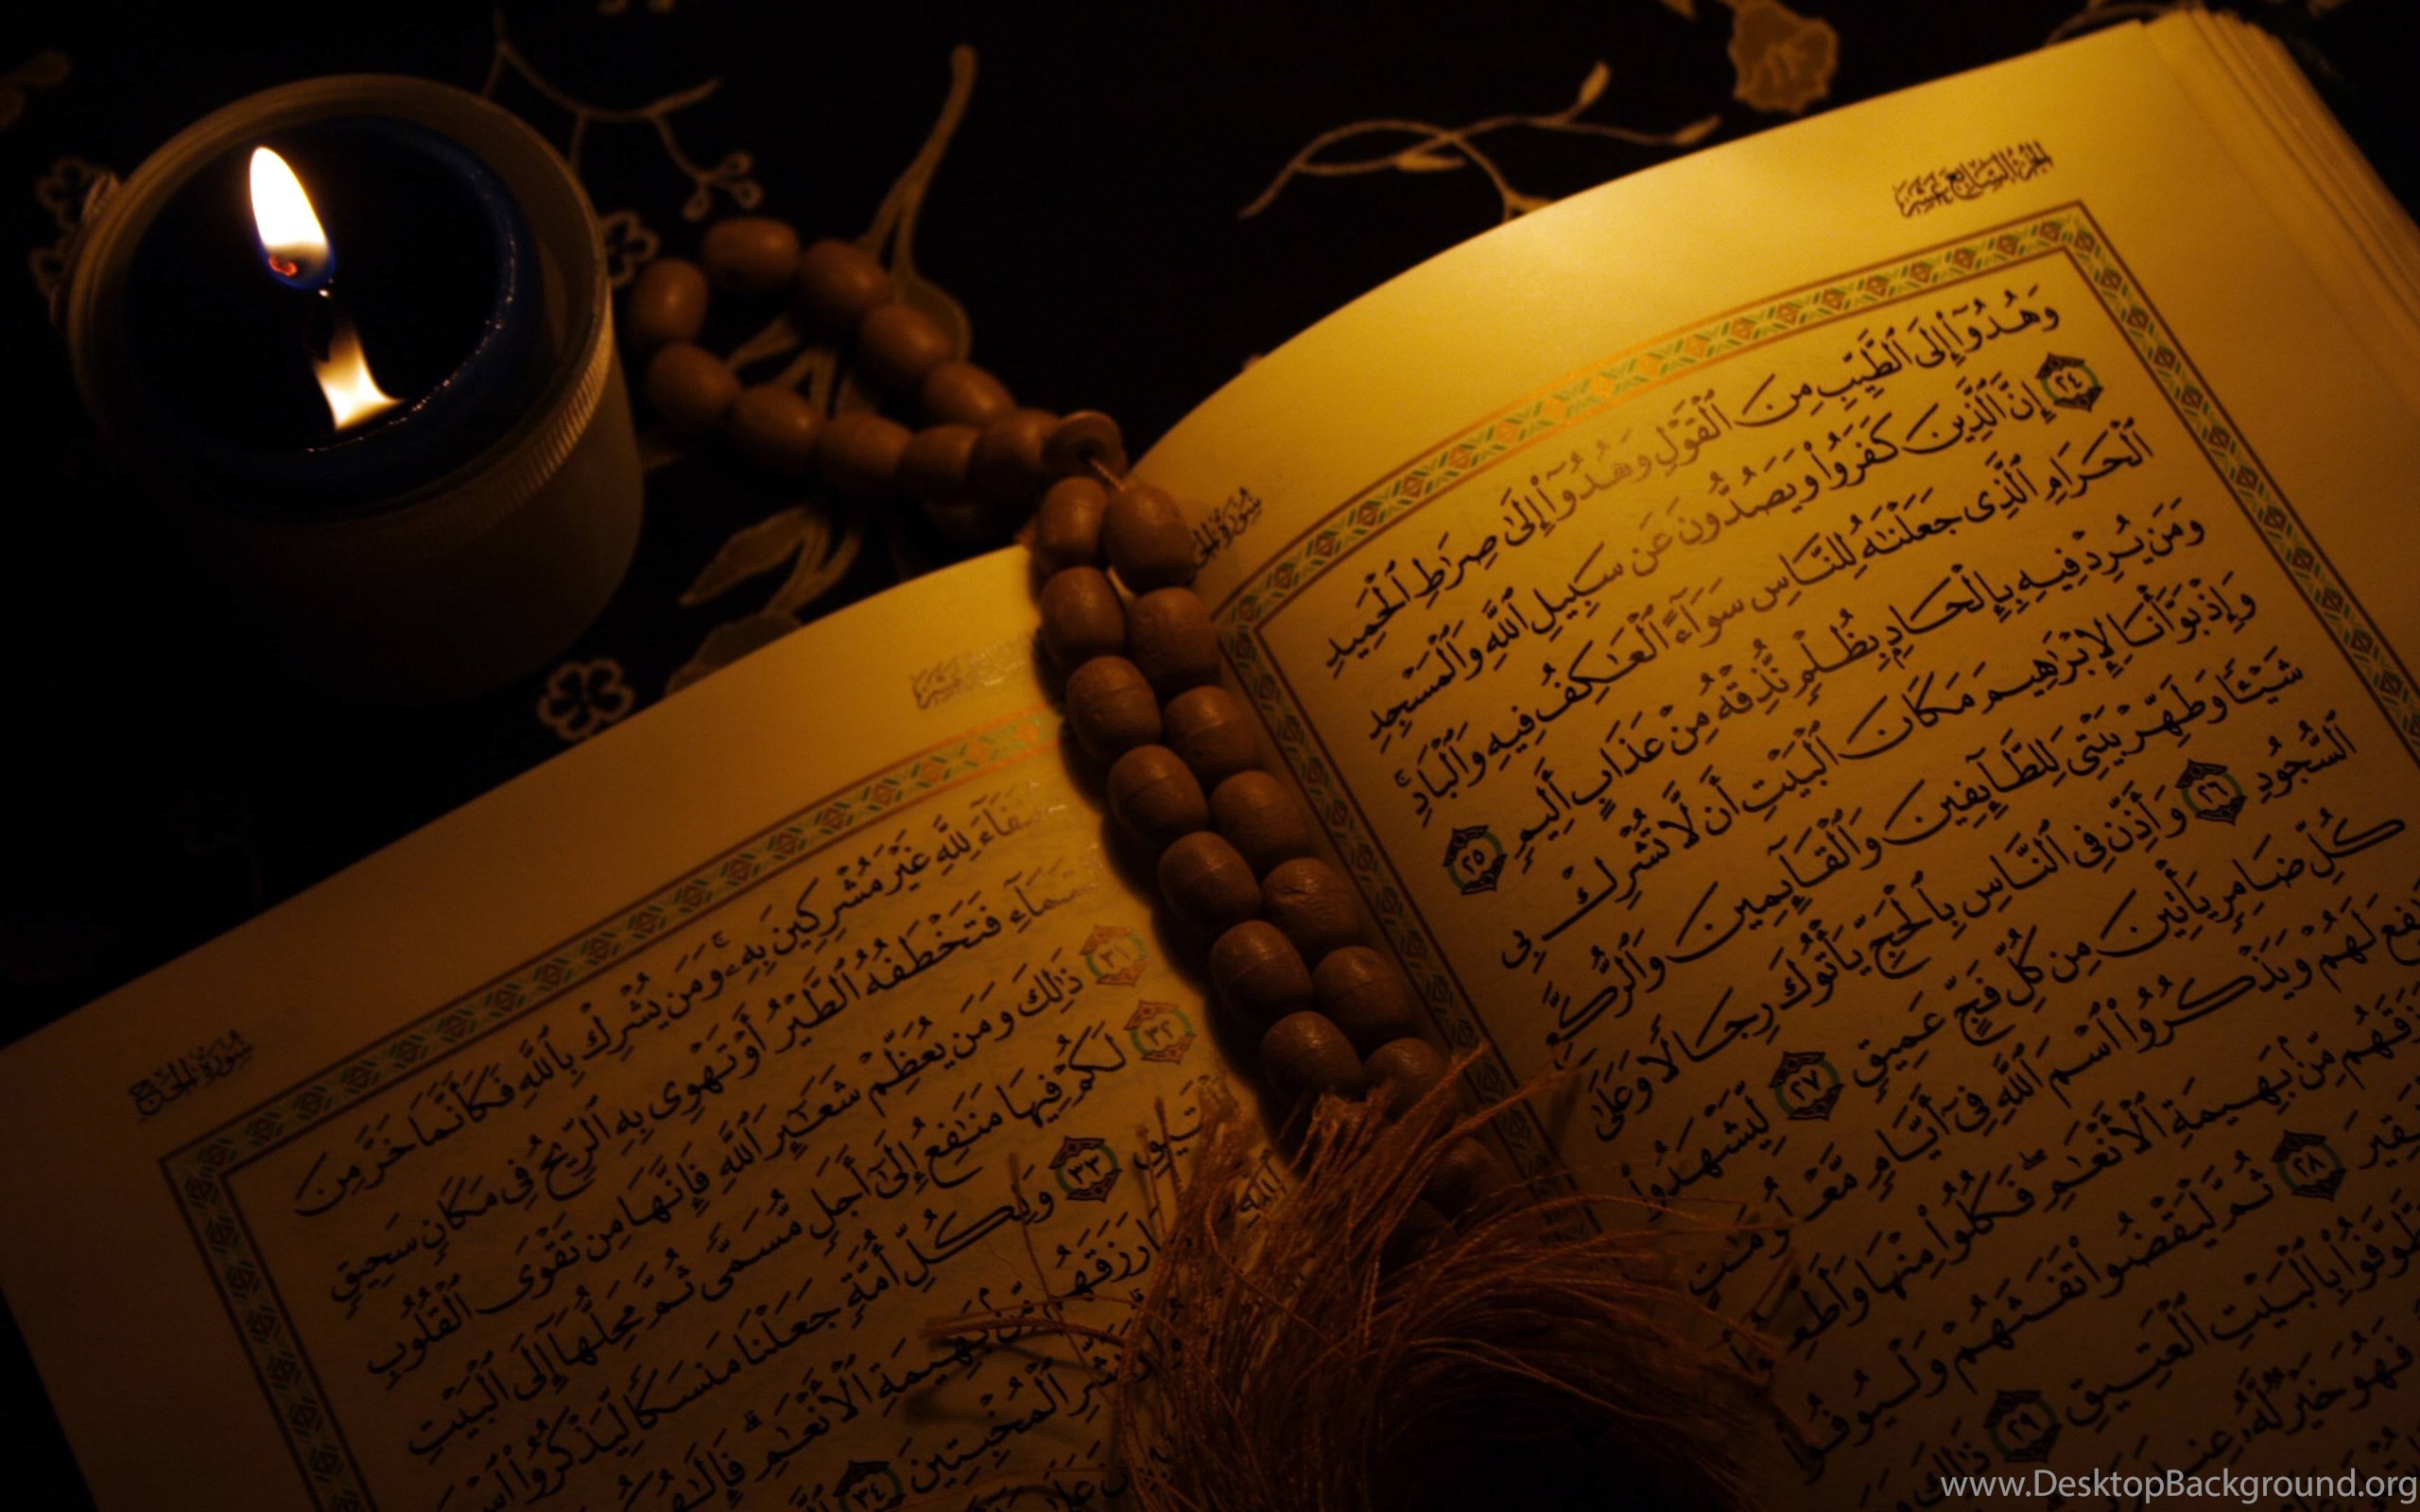 الجزء السابع عشر
وَهُدُوٓا۟ إِلَى ٱلطَّيِّبِ مِنَ ٱلْقَوْلِ وَهُدُوٓا۟ إِلَىٰ صِرَٰطِ ٱلْحَمِيدِ
٢٤ إِنَّ ٱلَّذِينَ كَفَرُوا۟ وَيَصُدُّونَ عَن سَبِيلِ ٱللَّهِ وَٱلْمَسْجِدِ
ٱلْحَرَامِ ٱلَّذِى جَعَلْنَٰهُ لِلنَّاسِ سَوَآءً ٱلْعَٰكِفُ فِيهِ وَٱلْبَادِ ۚ
وَمَن يُرِدْ فِيهِ بِإِلْحَادٍۭ بِظُلْمٍ نُّذِقْهُ مِنْ عَذَابٍ أَلِيمٍ ٢٥
وَإِذْ بَوَّأْنَا لِإِبْرَٰهِيمَ مَكَانَ ٱلْبَيْتِ أَن لَّا تُشْرِكْ بِى
شَيْـًٔا وَطَهِّرْ بَيْتِىَ لِلطَّآئِفِينَ وَٱلْقَآئِمِينَ وَٱلرُّكَّعِ
ٱلسُّجُودِ ٢٦ وَأَذِّن فِى ٱلنَّاسِ بِٱلْحَجِّ يَأْتُوكَ رِجَالًا وَعَلَىٰ
كُلِّ ضَامِرٍ يَأْتِينَ مِن كُلِّ فَجٍّ عَمِيقٍ ٢٧ لِّيَشْهَدُوا۟
لَهُمْ وَيَذْكُرُوا۟ ٱسْمَ ٱللَّهِ فِىٓ أَيَّامٍ مَّعْلُومَٰتٍ
مِّنۢ بَهِيمَةِ ٱلْأَنْعَٰمِ ۖ فَكُلُوا۟ مِنْهَا وَأَطْعِمُوا۟
٢٨ ثُمَّ لْيَقْضُوا۟ تَفَثَهُمْ وَلْيُوفُوا۟
بِٱلْبَيْتِ ٱلْعَتِيقِ ٢٩ ذَٰلِكَ
فَهُوَ خَيْرٌ لَّهُۥ عِندَ
سورة الحج
لِلَّهِ غَيْرَ مُشْرِكِينَ بِهِۦ ۚ وَمَن يُشْرِكْ بِٱللَّهِ فَكَأَنَّمَا خَرَّ مِنَ
فَتَخْطَفُهُ ٱلطَّيْرُ أَوْ تَهْوِى بِهِ ٱلرِّيحُ فِى مَكَانٍ سَحِيقٍ
٣١ ذَٰلِكَ وَمَن يُعَظِّمْ شَعَٰٓئِرَ ٱللَّهِ فَإِنَّهَا مِن تَقْوَى ٱلْقُلُوبِ
٣٢ لَكُمْ فِيهَا مَنَٰفِعُ إِلَىٰٓ أَجَلٍ مُّسَمًّى ثُمَّ مَحِلُّهَآ إِلَى ٱلْبَيْتِ
٣٣ وَلِكُلِّ أُمَّةٍ جَعَلْنَا مَنسَكًا لِّيَذْكُرُوا۟
رَزَقَهُم مِّنۢ بَهِيمَةِ ٱلْأَنْعَٰمِ ۗ
ٱلْمُخْبِتِينَ ٣٤
www.DesktopBackground.org